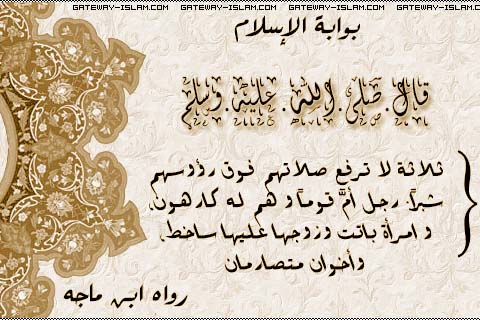 GATEWAY-ISLAM.COM GATEWAY-ISLAM.COM GATEWAY-ISLAM.COM GATEWAY-ISLAM.COM
بوابة الإسلام
قال صلى الله عليه وسلم
ثلاثة لا ترفع صلاتهم فوق رؤوسهم
شبراً، رجل أمَّ قوماً وهم له كارهون،
وامرأة باتت وزوجها عليها ساخط،
وأخوان متصارمان
رواه ابن ماجه